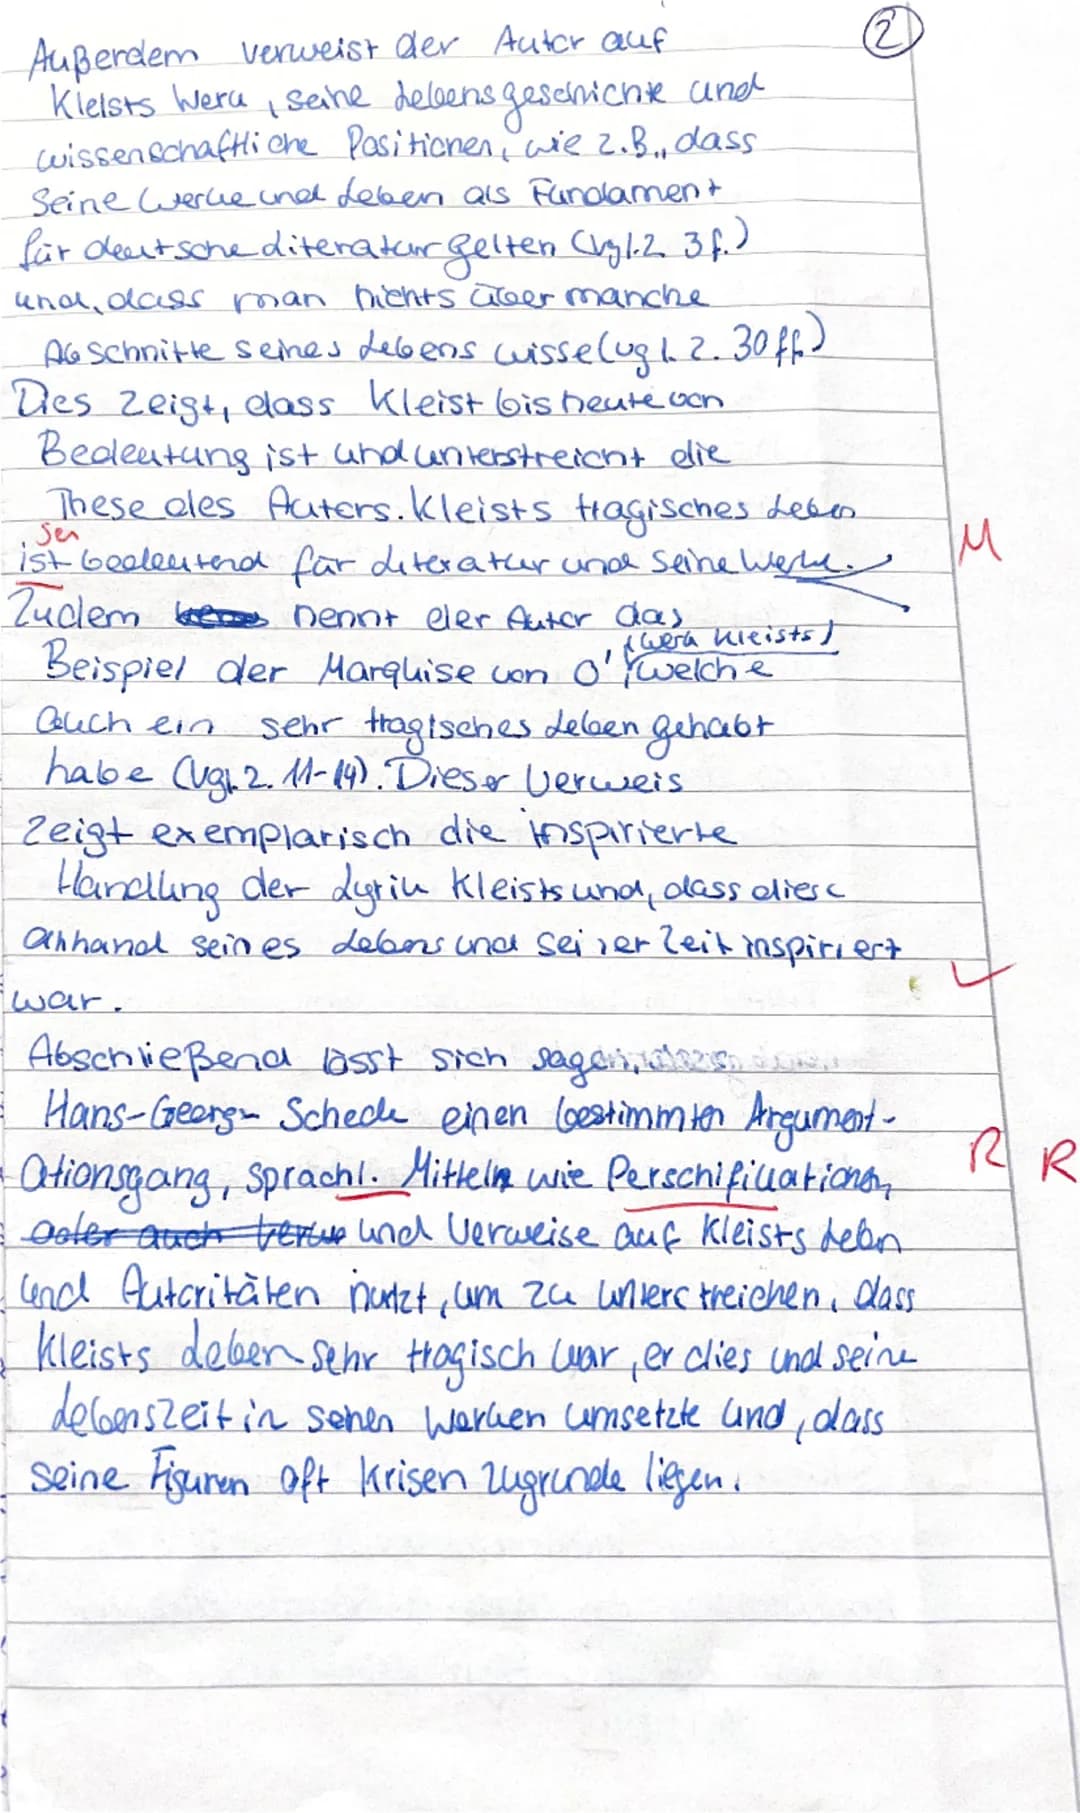 ②
Außerdem verweist der Autor auf
Kleists Werk, seine Lebensgeschichte und
wissenschaftliche Positionen, wie z.B., dass
Seine Werke und Leben als Fundament
für deutsche Literatur gelten (vgl. Z. 3f.)
und, dass man nichts über manche
Abschnitte seines Lebens wisse (vgl. Z. 30 ff.)
Dies zeigt, dass Kleist bis heute von
Bedeutung ist und unterstreicht die
These des Autors. Kleists tragisches Leben
sei
ist bedeutend für Literatur und seine Werke.
M
Zudem nennt der Autor das
(Werk Kleists)
Beispiel der Marquise von O', welche
auch ein sehr tragisches Leben gehabt
habe (Vgl. Z. 11-14). Dieser Verweis
zeigt exemplarisch die inspirierte
Handlung der Lyrik Kleists und, dass diese
anhand seines Lebens und seiner Zeit inspiriert
war.
Abschließend lässt sich sagen,
Hans-Georg Schede einen bestimmten Argument-
ationsgang, sprachl. Mitteln wie Perschifikationen,
R R
oder auch und Verweise auf Kleists Leben
und Autoritäten nutzt, um zu unterstreichen, dass
Kleists Leben sehr tragisch war, er dies und seine
Lebenszeit in seinen Werken umsetzte und, dass
seine Figuren oft Krisen zugrunde liegen.